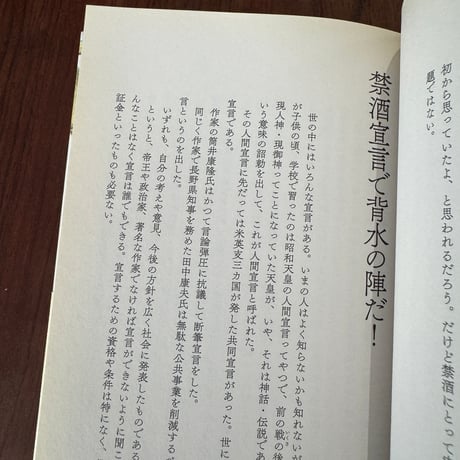 初から思っていたよ、と思われるだろう。だけど禁酒にとって
題ではない。
禁酒宣言で背水の陣だ！
世の中にはいろんな宣言がある。いまの人はよく知らないかも知れないが
が子供の頃、学校で習ったのは昭和天皇の人間宣言ってやつで、前の戦の後
現人神・現御神ってことになっていた天皇が、いや、それは神話・伝説であ
いう意味の詔勅を出して、これが人間宣言と呼ばれた。
その人間宣言に先だっては米英支三カ国が発した共同宣言があった。世に
宣言である。
作家の筒井康隆氏はかつて言論弾圧に抗議して断筆宣言をした。
同じく作家で長野県知事を務めた田中康夫氏は無駄な公共事業を削減する
言というのを出した。
いずれも、自分の考えや意見、今後の方針を広く社会に発表したものである
というと、帝王や政治家、著名な作家でなければ宣言ができないように聞こ
んなことはなく宣言は誰でもできる。宣言するための資格や条件は特になく、
証金といったものも必要ない。